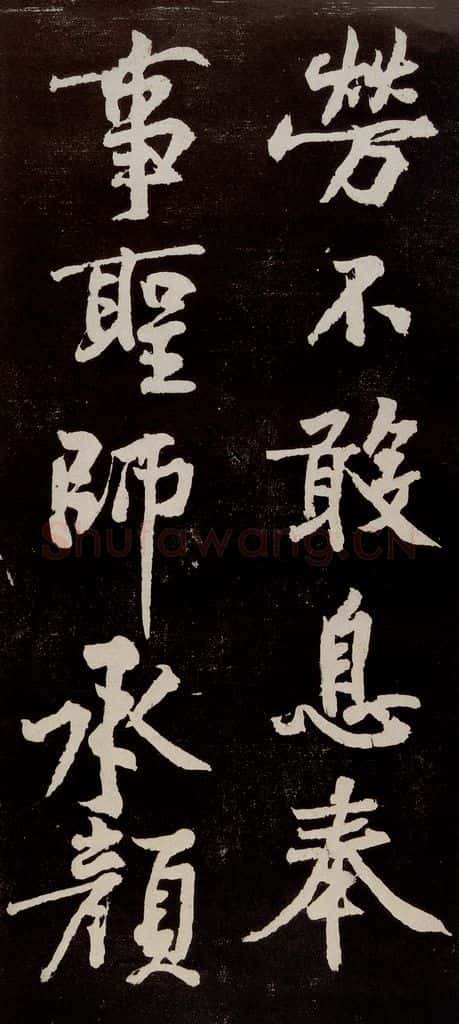 勞不敢息奉
事聖師承顏
Shufawang.CN